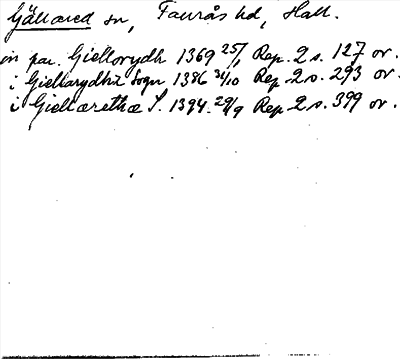 Gällared sn, Faurås hd, Hall.
in par. Giellorydh 1369 25/1 Rep. 2 s. 127 or.
i Giellarydhæ Sogn 1386 31/10 Rep 2 s. 293 or.
i Giellærethæ S. 1394 29/9 Rep 2 s. 399 or.